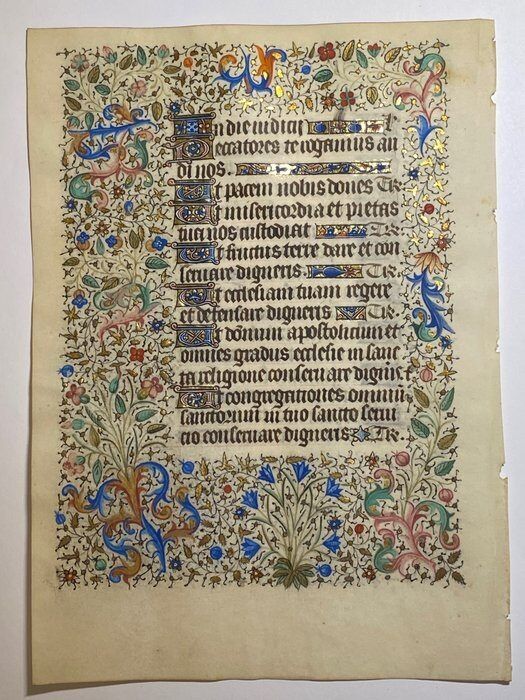 In die iudicij
Peccatores te rogamus au
di nos.
Ut pacem nobis dones Te R.
Ut misericordia et pietas
tua nos custodiat Te R.
Ut fructus terre dare et con
seruare digneris. Te R.
Ut ecclesiam tuam regere
et defensare digneris Te R.
Ut domnum apostolicum et
omnes gradus ecclesie in sanc
ta religione conseruare digneris
Ut congregationes omnium
sanctorum in tuo sancto serui
cio conseruare digneris Te R.